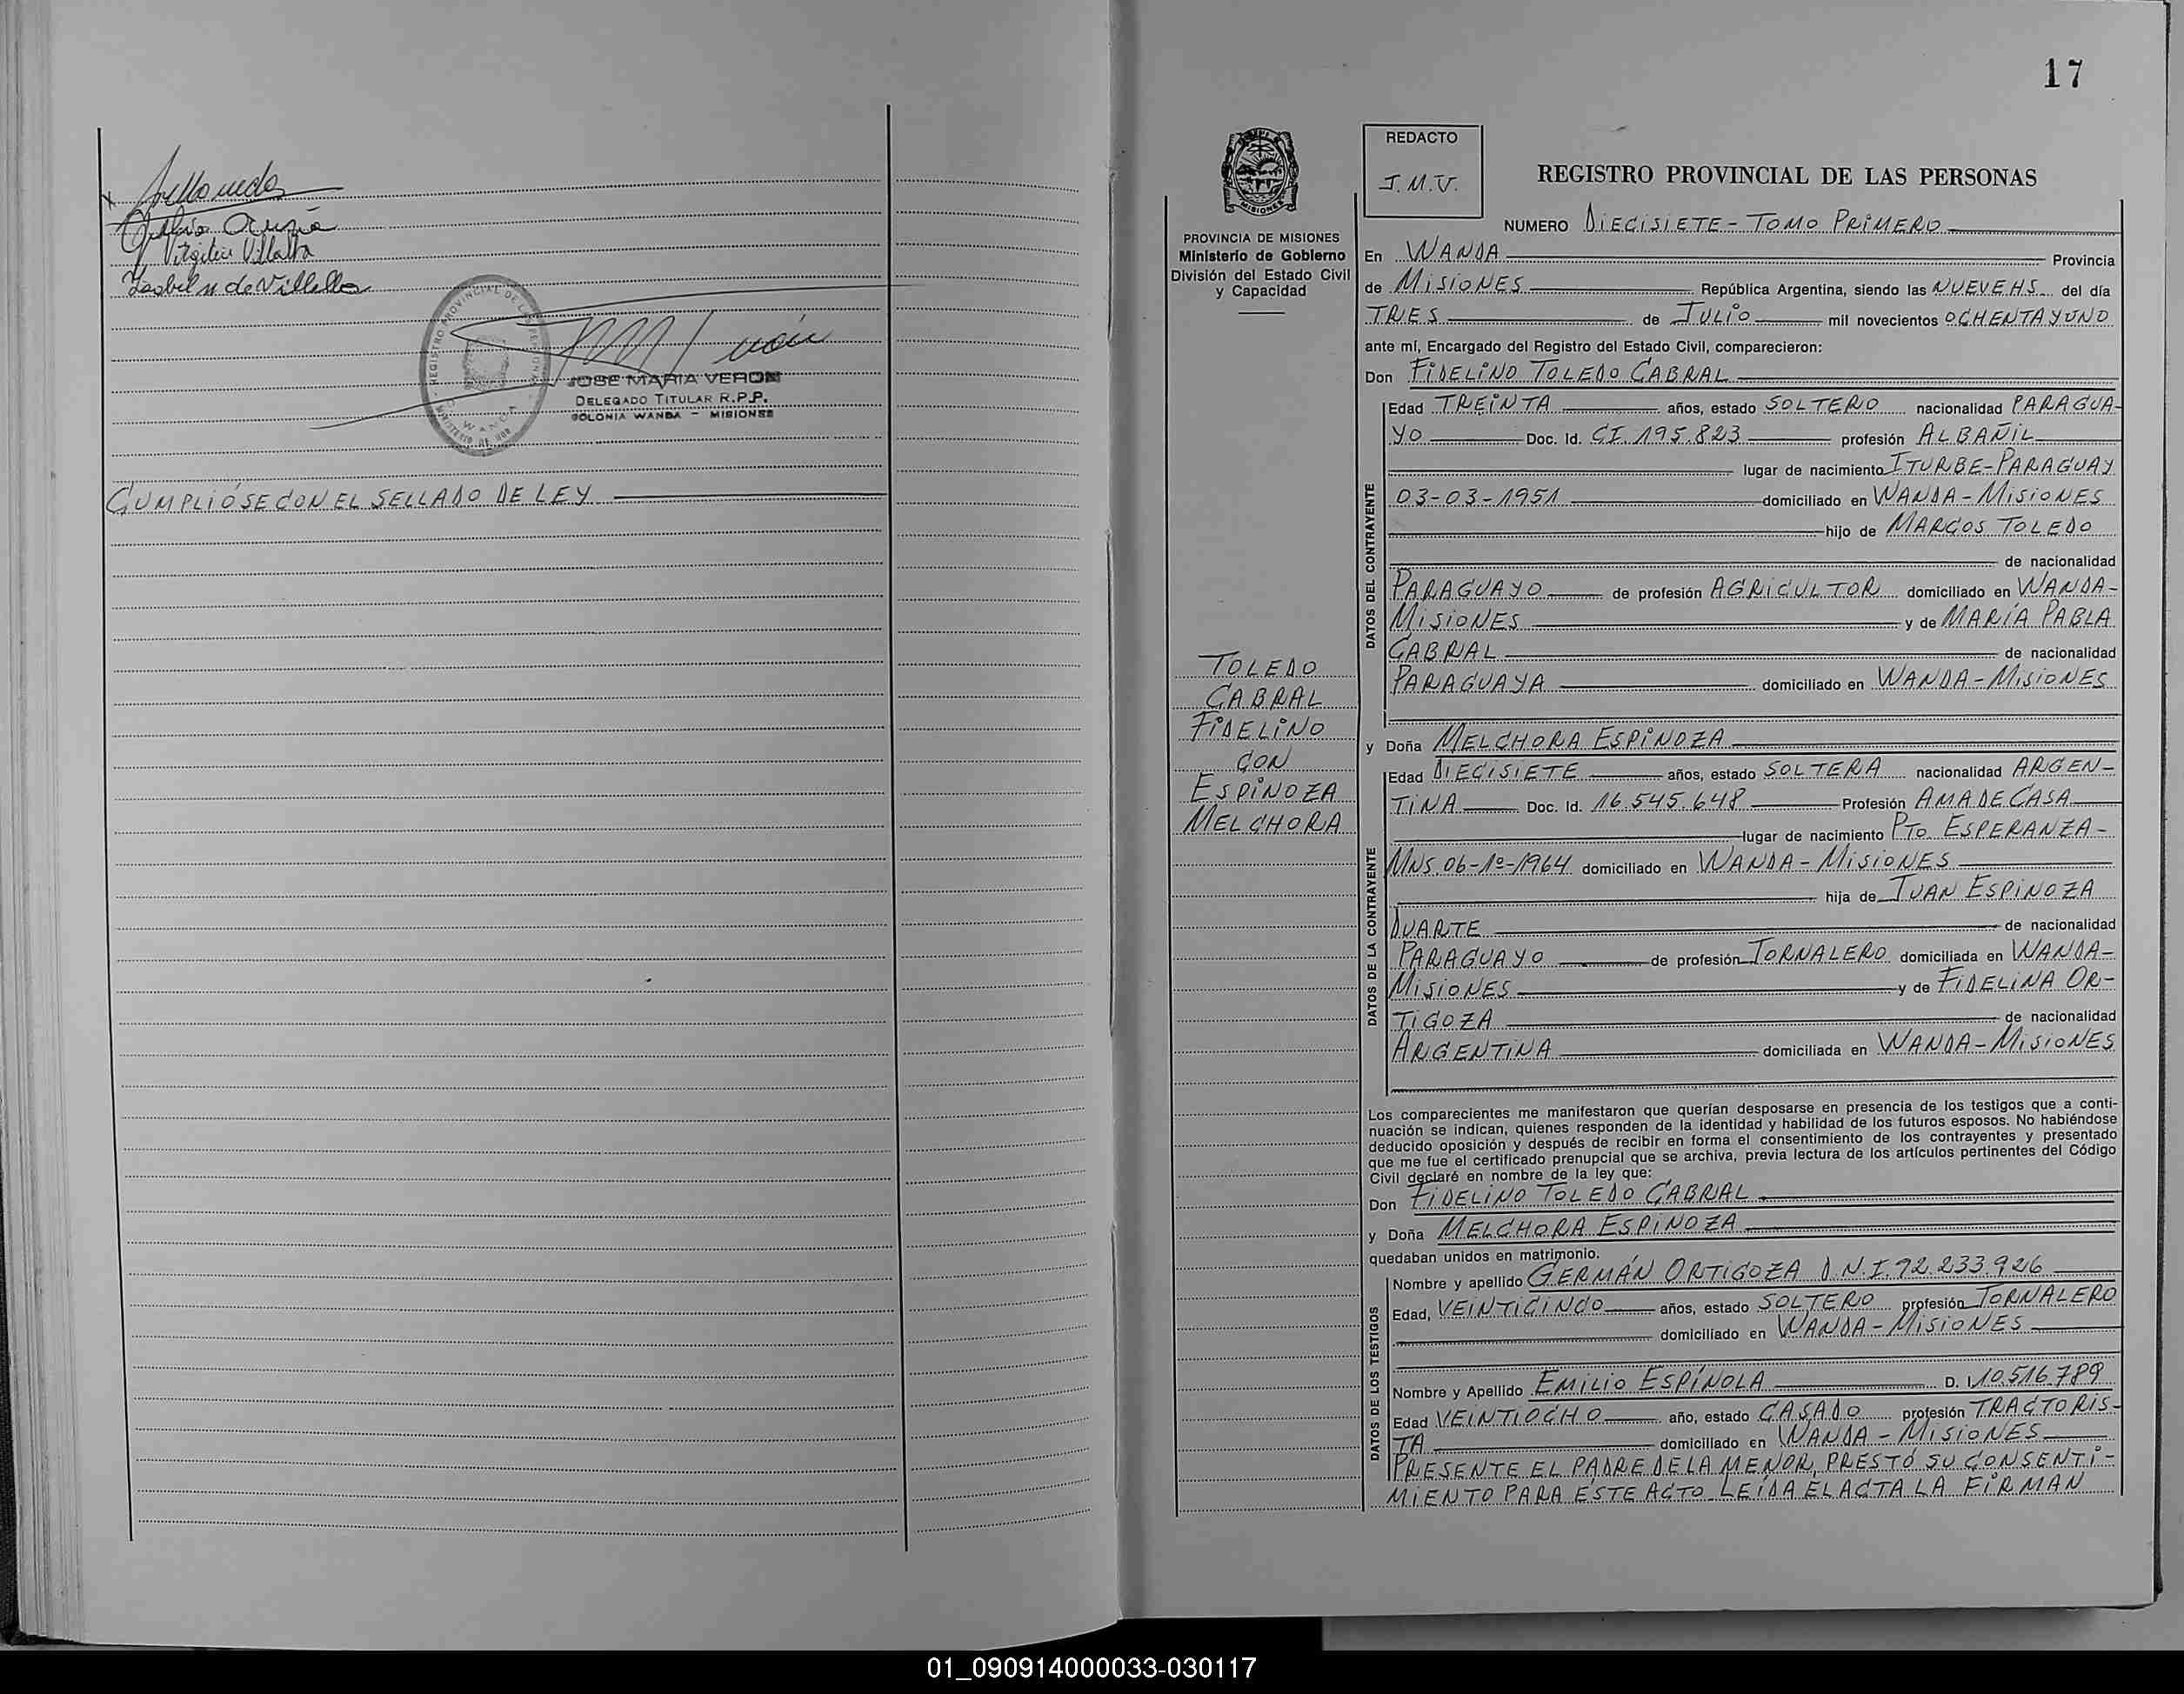 Virgilio Villalba
Isabel N de Villalba
REGISTRO PROVINCIAL DE LAS PERSONAS
WANDA
JOSE MARIA VERON
DELEGADO TITULAR R.P.P.
COLONIA WANDA - MISIONES
CUMPLIÓSE CON EL SELLADO DE LEY
17
REDACTO
J.M.V.
MISIONES
PROVINCIA DE MISIONES
Ministerio de Gobierno
División del Estado Civil
y Capacidad
TOLEDO
CABRAL
FIDELINO
CON
ESPINOZA
MELCHORA
REGISTRO PROVINCIAL DE LAS PERSONAS
NUMERO DIECISIETE - TOMO PRIMERO
En WANDA Provincia
de MISIONES República Argentina, siendo las NUEVE HS. del día
TRES de JULIO mil novecientos OCHENTA Y UNO
ante mí, Encargado del Registro del Estado Civil, comparecieron:
Don FIDELINO TOLEDO CABRAL
DATOS DEL CONTRAYENTE
Edad TREINTA años, estado SOLTERO nacionalidad PARAGUA-
YO Doc. Id. CI. 195.823 profesión ALBAÑIL
lugar de nacimiento ITURBE-PARAGUAY
03-03-1951 domiciliado en WANDA-MISIONES
hijo de MARCOS TOLEDO
de nacionalidad
PARAGUAYO de profesión AGRICULTOR domiciliado en WANDA-
MISIONES y de MARÍA PABLA
CABRAL de nacionalidad
PARAGUAYA domiciliado en WANDA-MISIONES
y Doña MELCHORA ESPINOZA
DATOS DE LA CONTRAYENTE
Edad DIECISIETE años, estado SOLTERA nacionalidad ARGEN-
TINA Doc. Id. 16.545.648 Profesión AMA DE CASA
lugar de nacimiento PTO ESPERANZA-
MNS. 06-1º-1964 domiciliado en WANDA-MISIONES
hija de JUAN ESPINOZA
DUARTE de nacionalidad
PARAGUAYO de profesión JORNALERO domiciliada en WANDA-
MISIONES y de FIDELINA OR-
TIGOZA de nacionalidad
ARGENTINA domiciliada en WANDA-MISIONES
Los comparecientes me manifestaron que querían desposarse en presencia de los testigos que a conti-
nuación se indican, quienes responden de la identidad y habilidad de los futuros esposos. No habiéndose
deducido oposición y después de recibir en forma el consentimiento de los contrayentes y presentado
que me fue el certificado prenupcial que se archiva, previa lectura de los artículos pertinentes del Código
Civil declaré en nombre de la ley que:
Don FIDELINO TOLEDO CABRAL
y Doña MELCHORA ESPINOZA
quedaban unidos en matrimonio.
DATOS DE LOS TESTIGOS
Nombre y apellido GERMÁN ORTIGOZA D.N.I. 92.233.926
Edad, VEINTICINCO años, estado SOLTERO profesión JORNALERO
domiciliado en WANDA-MISIONES
Nombre y Apellido EMILIO ESPÍNOLA D. I. 10.516.789
Edad VEINTIOCHO año, estado CASADO profesión TRACTORIS-
TA domiciliado en WANDA-MISIONES
PRESENTE EL PADRE DE LA MENOR, PRESTÓ SU CONSENTI-
MIENTO PARA ESTE ACTO LEIDA EL ACTA LA FIRMAN
01_090914000033-030117